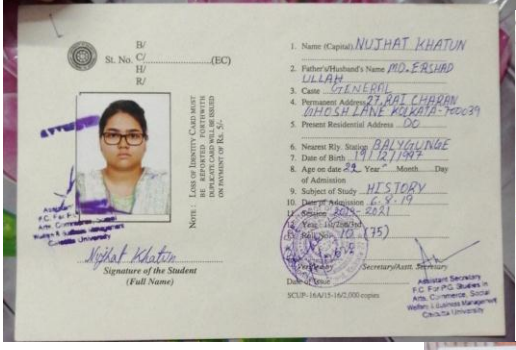 B/
St. No. C/ (EC)
H/
R/
NOTE : LOSS OF IDENTITY CARD MUST
BE REPORTED FORTHWITH
DUPLICATE CARD WILL BE ISSUED
ON PAYMENT OF RS. 5/-
F.C. For P.G.
Arts, Commerce, Social
Welfare & Business Management
Calcutta University
Nujhat Khatun
Signature of the Student
(Full Name)
1. Name (Capital) NUJHAT KHATUN
2. Father's/Husband's Name MD. ERSHAD
ULLAH
3. Caste GENERAL
4. Permanent Address 27, RAI CHARAN
GHOSH LANE KOLKATA-700039
5. Present Residential Address DO
6. Nearest Rly. Station BALYGUNGE
7. Date of Birth 19/12/1997
8. Age on date 21 Year Month Day
of Admission
9. Subject of Study HISTORY
10. Date of Admission 6.8.19
11. Session 2019-2021
12. Year 1st/2nd/3rd
13. Roll No. 10 (75)
Verified by Secretary/Asstt. Secretary
Date of Issue
Assistant Secretary
F.C. For P.G. Studies in
Arts, Commerce, Social
Welfare & Business Management
Calcutta University
SCUP-16A/15-16/2,000 copies